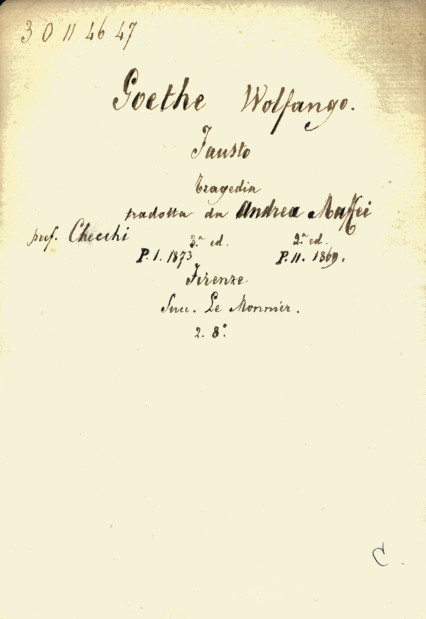 3 0 11 46 47
Goethe Wolfango.
Fausto
tragedia
tradotta da Andrea Maffei
pref. Checchi 3.a ed. 2.a ed.
P. I. 1873 P. II. 1869.
Firenze
Succ. Le Monnier.
2. 8.°
C.